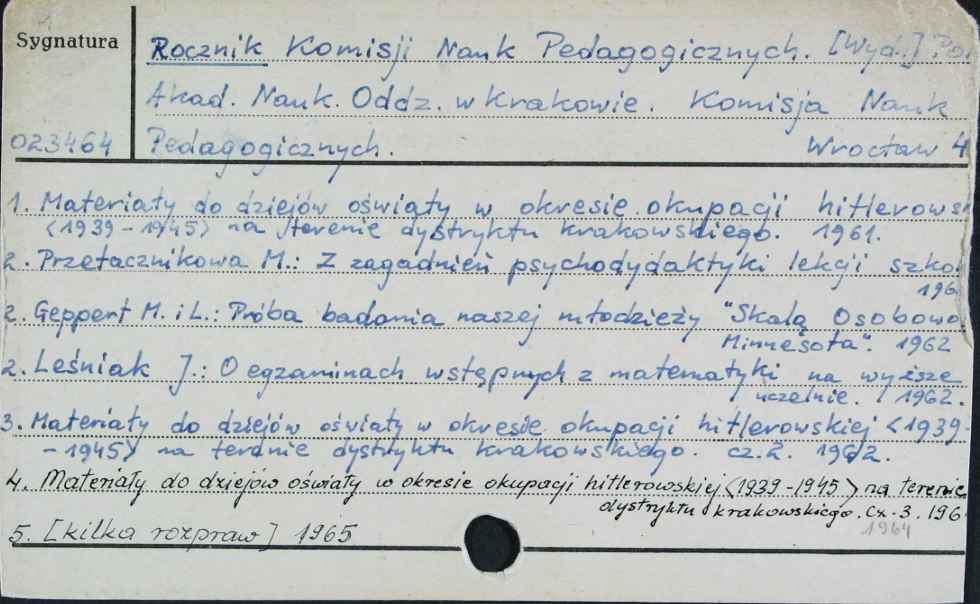 Sygnatura
Rocznik Komisji Nauk Pedagogicznych. [Wyd.] Po.
Akad. Nauk. Oddz. w Krakowie. Komisja Nauk
023464 Pedagogicznych. Wrocław 4
1. Materiały do dziejów oświaty w okresie okupacji hitlerows
<1939-1945> na terenie dystryktu krakowskiego. 1961.
2. Przetacznikowa M.: Z zagadnień psychodydaktyki lekcji szko
196
2. Geppert M. i L.: Próba badania naszej młodzieży "Skalą Osobowo
Minnesota". 1962
2. Leśniak J.: O egzaminach wstępnych z matematyki na wyższe
uczelnie. 1962.
3. Materiały do dziejów oświaty w okresie okupacji hitlerowskiej <1939-
-1945> na terenie dystryktu krakowskiego. cz. 2. 1962.
4. Materiały do dziejów oświaty w okresie okupacji hitlerowskiej <1939-1945> na terenie
dystryktu krakowskiego. Cz. 3. 196
1964
5. [kilka rozpraw] 1965